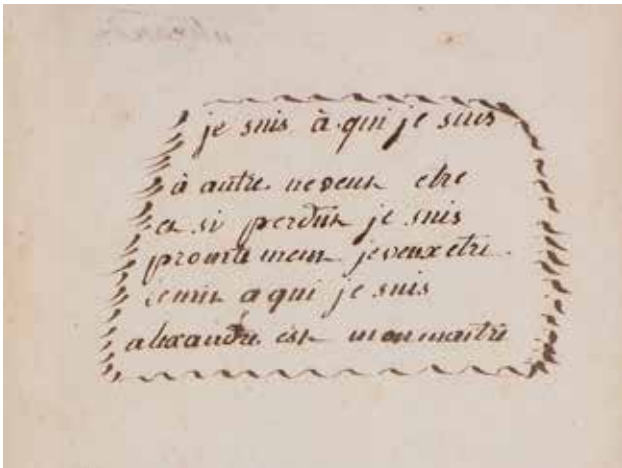 je suis à qui je suis
à autre ne veux etre
et si perdus je suis
promte meux je veux etre
a qui je suis
alexandre est mon maitre